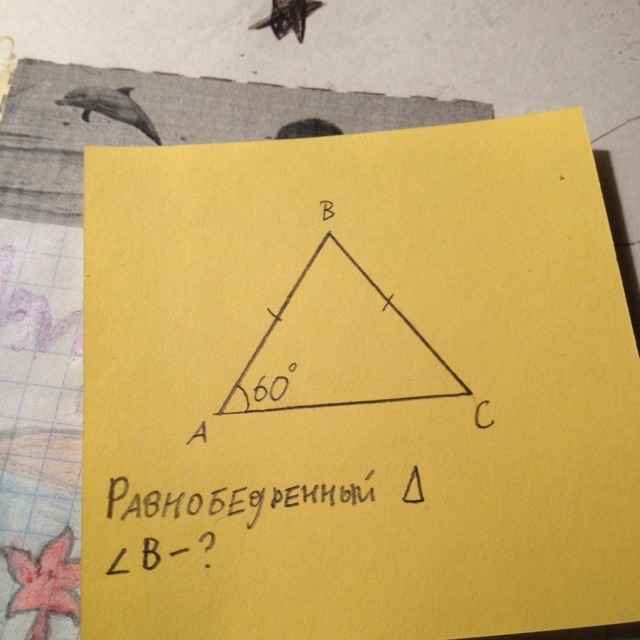 B
60°
A
C
РАВНОБЕДРЕННЫЙ Δ
∠B-?